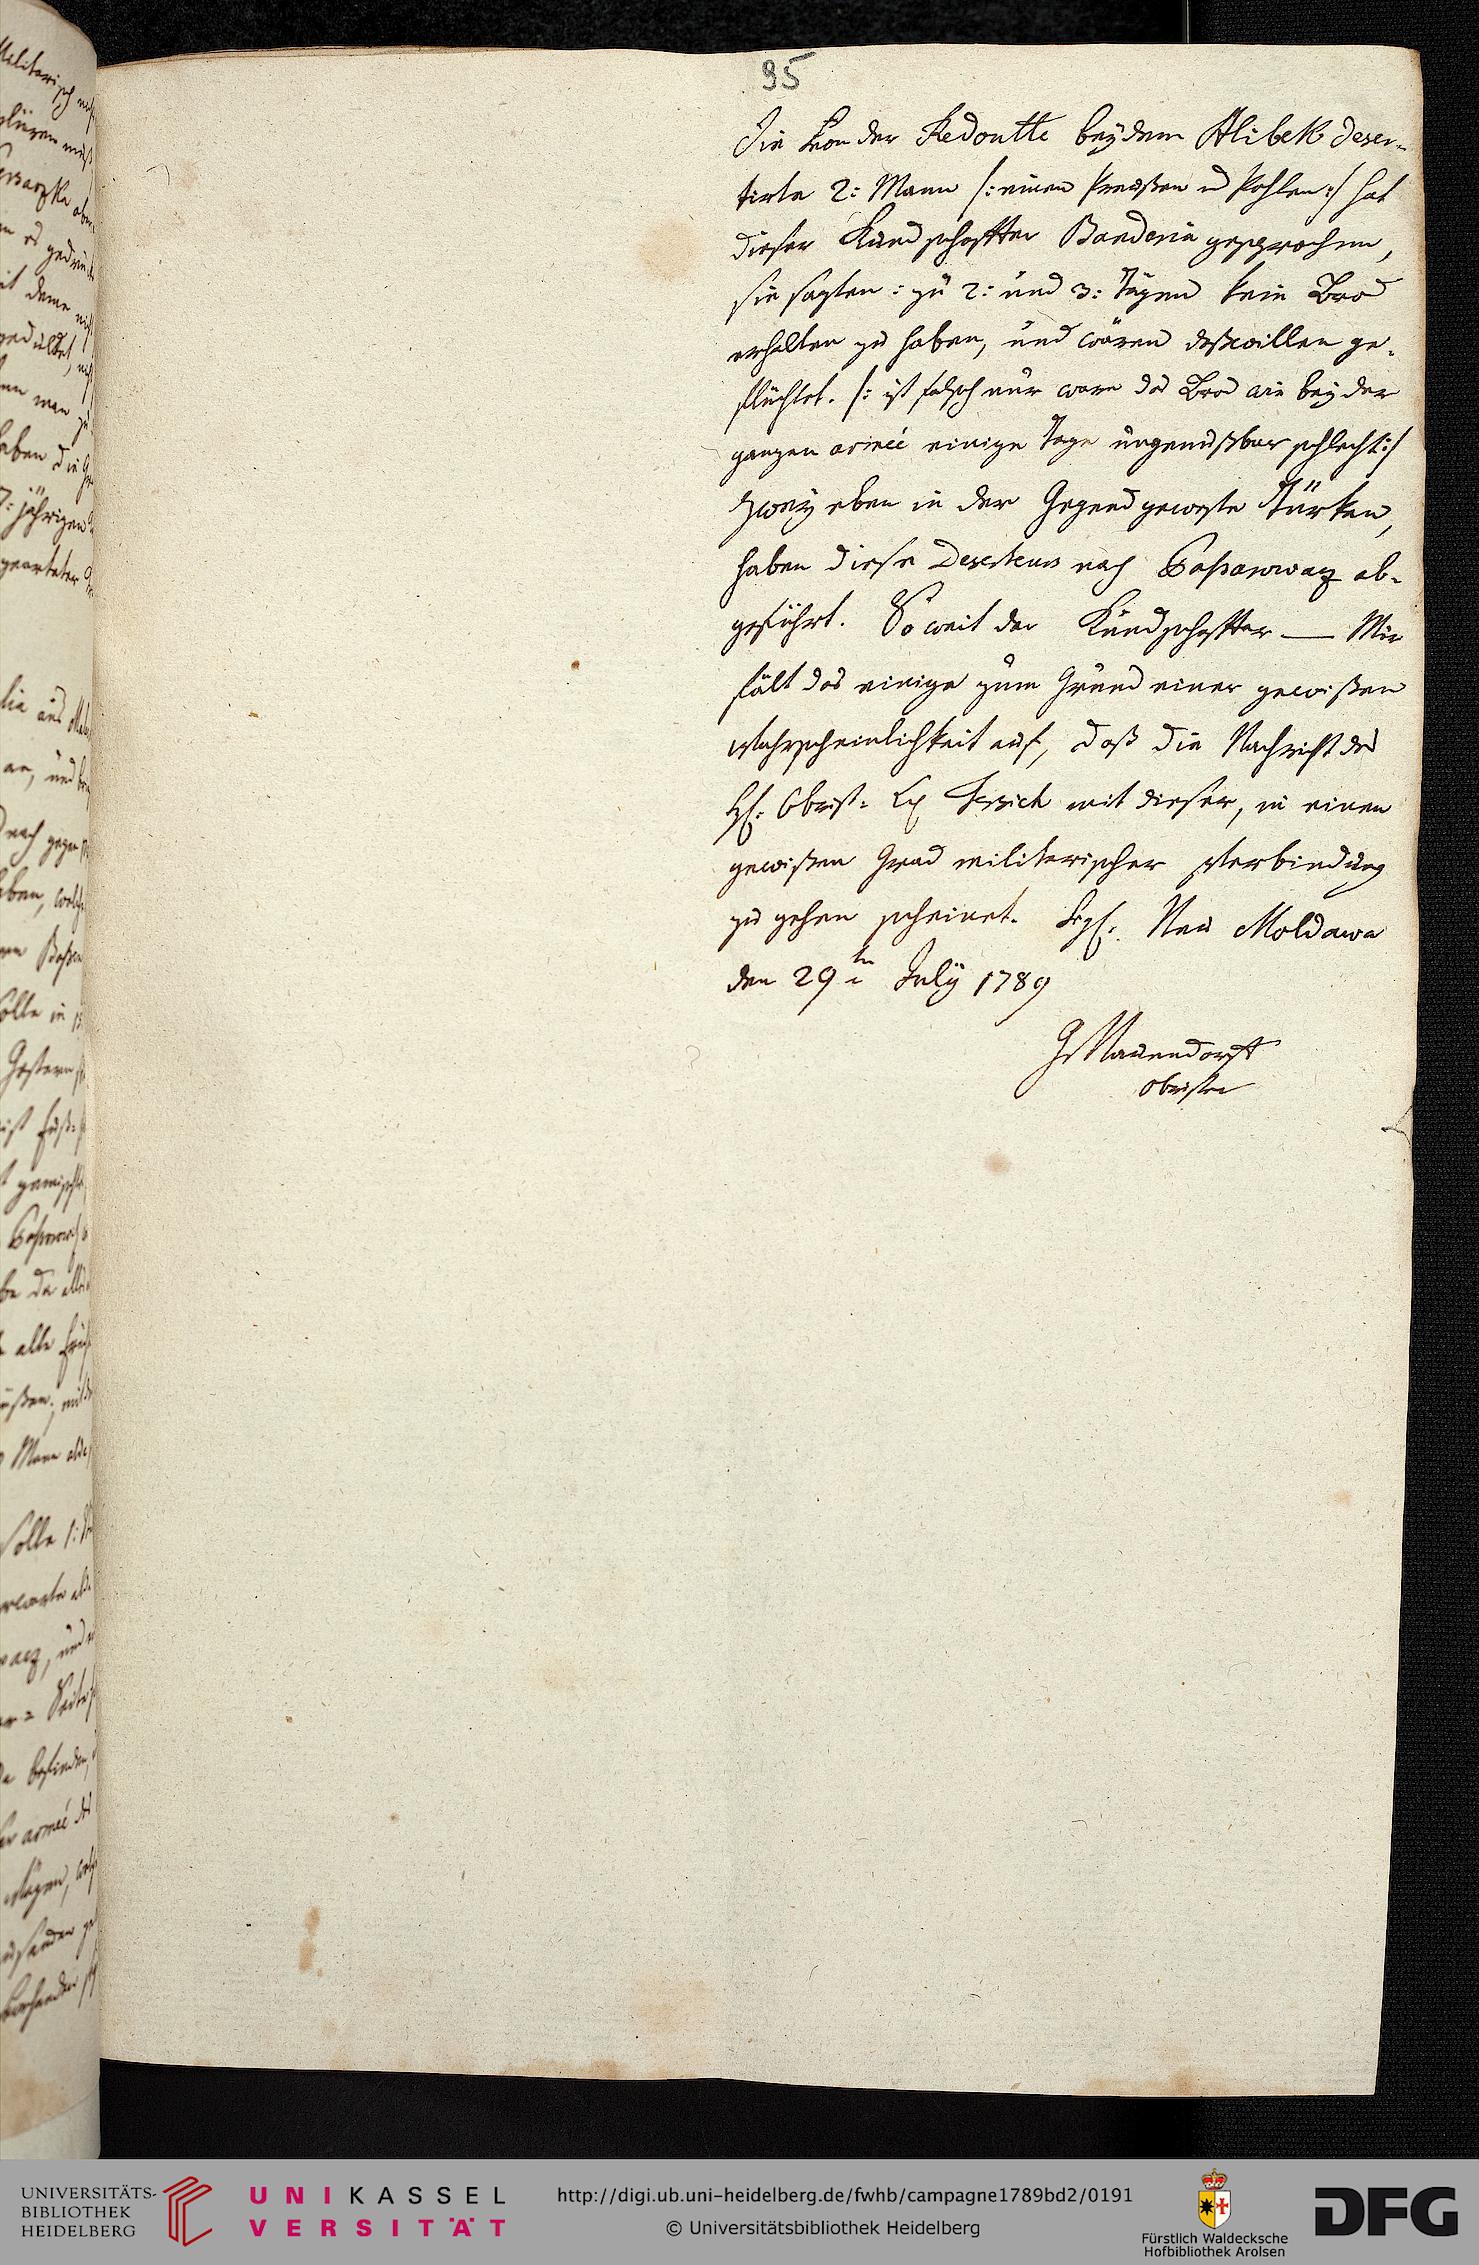 95
Die von der Redoutte beÿ dem Alibek deser-
tirte 2: Mann /: einen Preußen u Pohlen :/ hat
dieser Kundschaffter Banderia gesprochen,
sie sagten: zu 2: und 3: Tägen kein Brod
erhalten zu haben, und wären deßwillen ge-
flüchtet. /: ist falsch nur ware das Brod wie beÿ der
ganzen armée einige Tage ungenüßbar schlecht :/
Zweÿ eben in der Gegend geweste Türken,
haben diese Deserteurs nach Paßarowaz ab-
geführt. So weit der Kundschaffter — Mir
fält das einige zum Grund einer gewißen
Wahrscheinlichkeit auf, daß die Nachricht des
H: Obrist: mit dieser, in einen
gewißen Grad militerischer Verbindung
zu gehen scheinet. Sig: Neu Moldawa
den 29ten Julÿ 1789
G Nauendorff
Obrister
UNIVERSITÄTS-
BIBLIOTHEK
HEIDELBERG
UNIKASSEL
VERSITÄT
http://digi.ub.uni-heidelberg.de/fwhb/campagne1789bd2/0191
© Universitätsbibliothek Heidelberg
Fürstlich Waldecksche
Hofbibliothek Arolsen
DFG